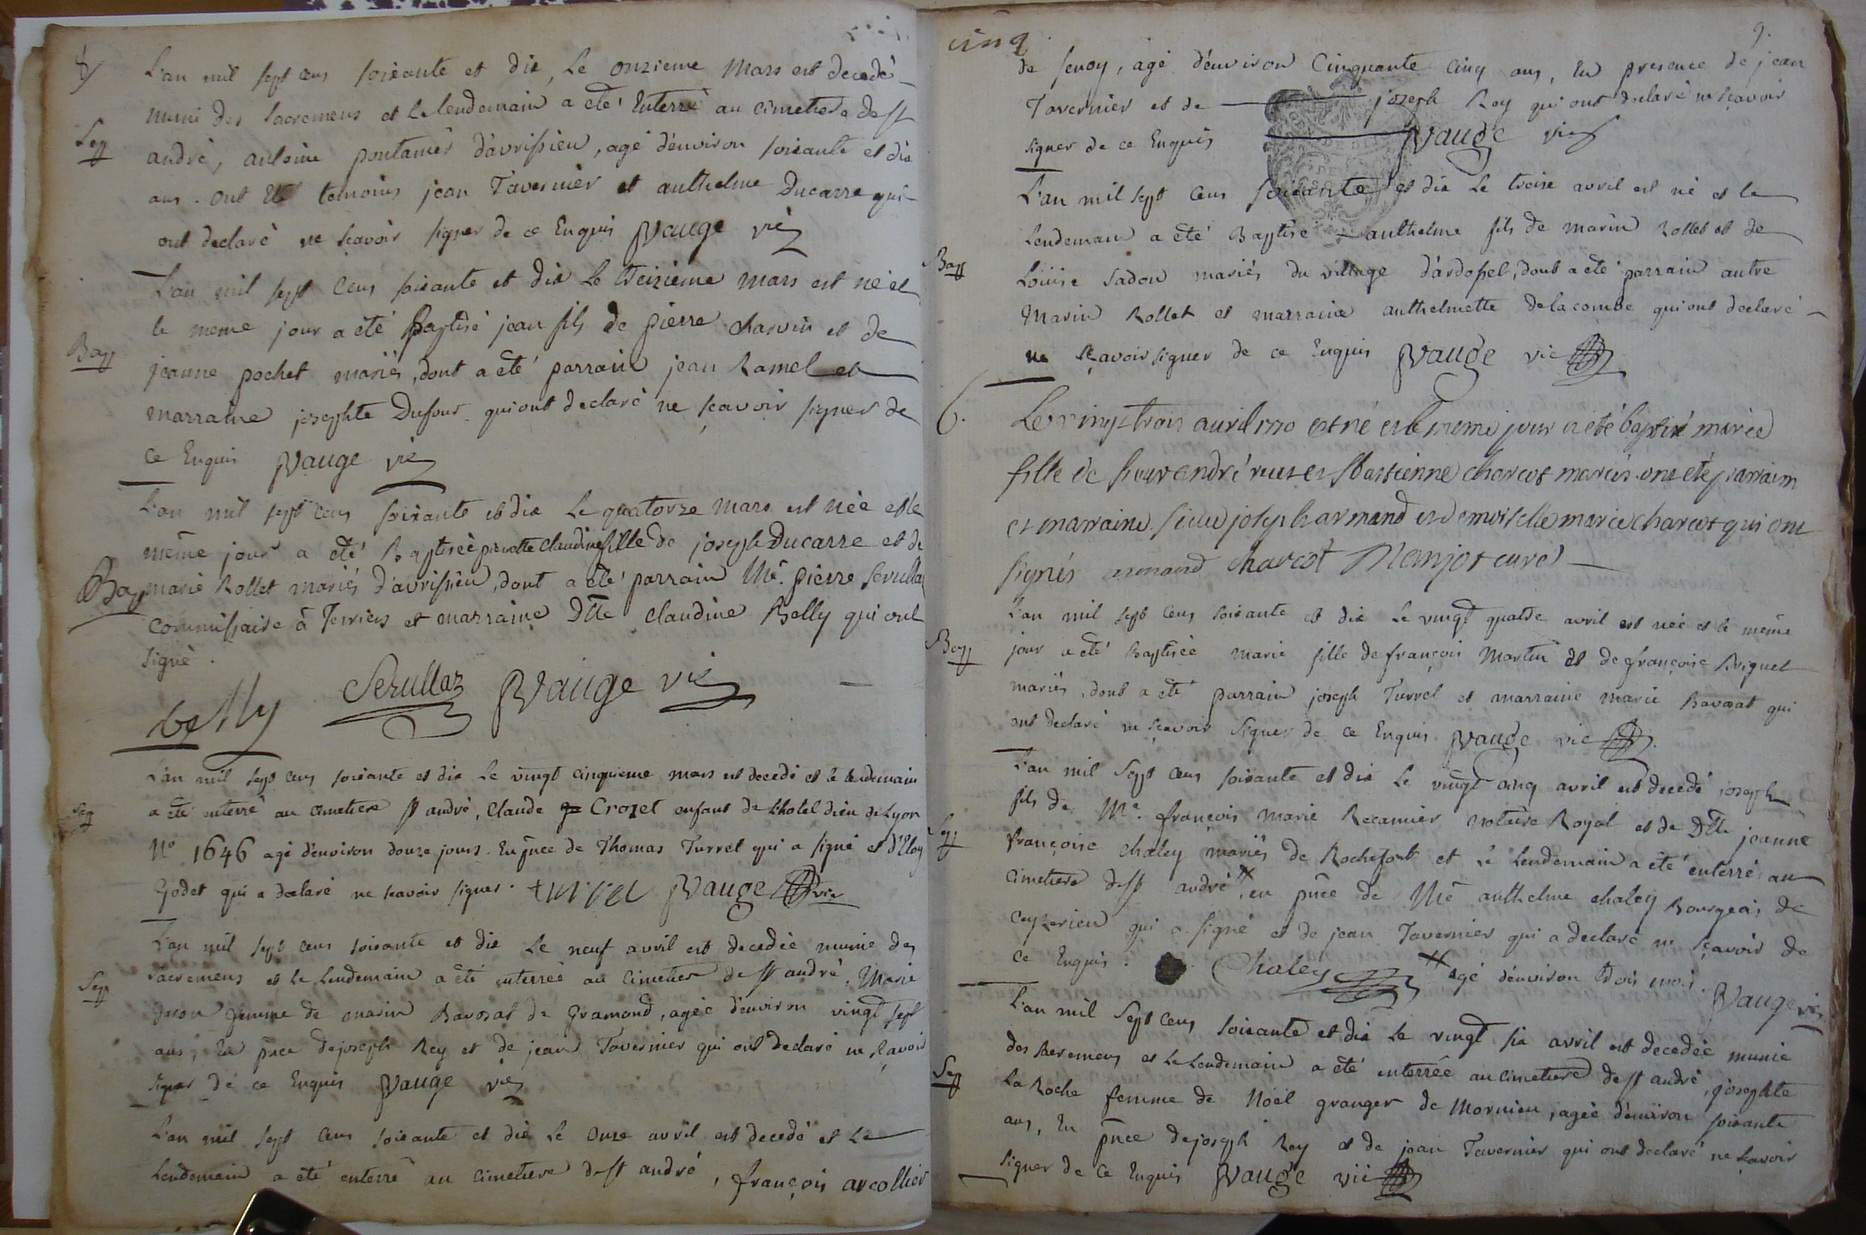 L'an mil sept cens soixante et dix, Le onzieme Mars est decedé
muni des Sacremens et Le lendemain a eté Enterré au cimetiere de st
Sep
andré, antoine pontanier d'avrissieu, agé d'environ soixante et dix
ans. ont eté temoins jean Tavernier et anthelme Ducarre qui
ont declaré ne sçavoir signer de ce Enquis Vauge vic
L'an mil sept cens soixante et dix Le treizieme mars est né et
le meme jour a été Baptisé jean fils de pierre charvin et de
Bap
jeanne pochet mariés, dont a eté parrain jean Ramel et
marraine josephte Dufour qui ont declaré ne sçavoir signer de
ce Enquis Vauge vic
L'an mil sept cens soixante et dix Le quatorze mars est née et le
même jour a été Baptisée pierrette Claudine fille de joseph Ducarre et de
Bap
marie Rollet mariés d'avrissieu, dont a été parrain Me. pierre Serullaz
commissaire à et marraine Dlle claudine Belly qui ont
signé.
belly Serullaz Vauge vic
L'an mil sept cens soixante et dix Le vingt cinquieme mars est decedé et le lendemain
Sep
a été enterré au cimetiere st andré, Claude Crozet enfant de l'hotel dieu de Lyon
No. 1646 agé d'environ douze jours. En pnce de Thomas Turrel qui a signé et d'Eloy
Godet qui a declaré ne scavoir signer. turrel Vauge vic
L'an mil sept cens soixante et dix Le neuf avril est decedée munie des
Sep
sacremens et le Lendemain a été enterrée au cimetiere de st andré, Marie
femme de marin Bavozat de Gramond, agée d'environ vingt sept
ans, En pnce de joseph Rey et de jean Tavernier qui ont declaré ne sçavoir
signer de ce Enquis Vauge vic
L'an mil sept cens soixante et dix Le onze avril est decedé et Le
Lendemain a été enterré au cimetiere de st andré, françois arcollier
cinq 9.
de senoy, agé d'environ Cinquante cinq ans, En presence de jean
Tavernier et de joseph Rey qui ont declaré ne sçavoir
signer de ce Enquis Vauge vic
L'an mil sept cens soixante et dix Le treize avril est né et le
Lendemain a été Baptisé anthelme fils de marin Rollet et de
Bap
Louise Sadon mariés du village d'ardosset, dont a eté parrain autre
Marin Rollet et marraine anthelmette delacombe qui ont declaré
ne sçavoir signer de ce Enquis Vauge vic
6. Le vingt trois auril 1770 est né et le meme jour a été baptisé marie
fille de sieur andré et Sbastienne charcot mariés. ont étés parrain
et marraine. sieur joseph armand et demoiselle marie charcot qui ont
signés armand charcot Monjot curé
L'an mil sept cens soixante et dix Le vingt quatre avril est née et le même
Bap
jour a été Baptisée marie fille de françois Martin et de françoise Briquet
mariés, dont a eté parrain joseph Turrel et marraine marie Bavozat qui
ont declaré ne sçavoir signer de ce Enquis Vauge vic
L'an mil sept cens soixante et dix Le vingt cinq avril est decedé joseph
fils de Me. françois marie Recamier notaire Royal et de Dlle jeanne
Sep
françoise chaley mariés de Rochefort et Le Lendemain a été enterré au
cimetiere de st andré X en pnce de Me anthelme chaley Bourgeois de
ceyzerieu qui a signé et de jean Tavernier qui a declaré ne sçavoir de
ce Enquis. Chaley X agé d'environ trois mois. Vauge vic
L'an mil sept cens soixante et dix Le vingt six avril est decedée munie
des Sacremens et Le Lendemain a été enterrée au cimetiere de st andré, josephte
Sep
La Roche femme de Noël granger de Mornieu, agée d'environ soixante
ans, En pnce de joseph Rey et de jean Tavernier qui ont declaré ne scavoir
signer de ce Enquis Vauge vic